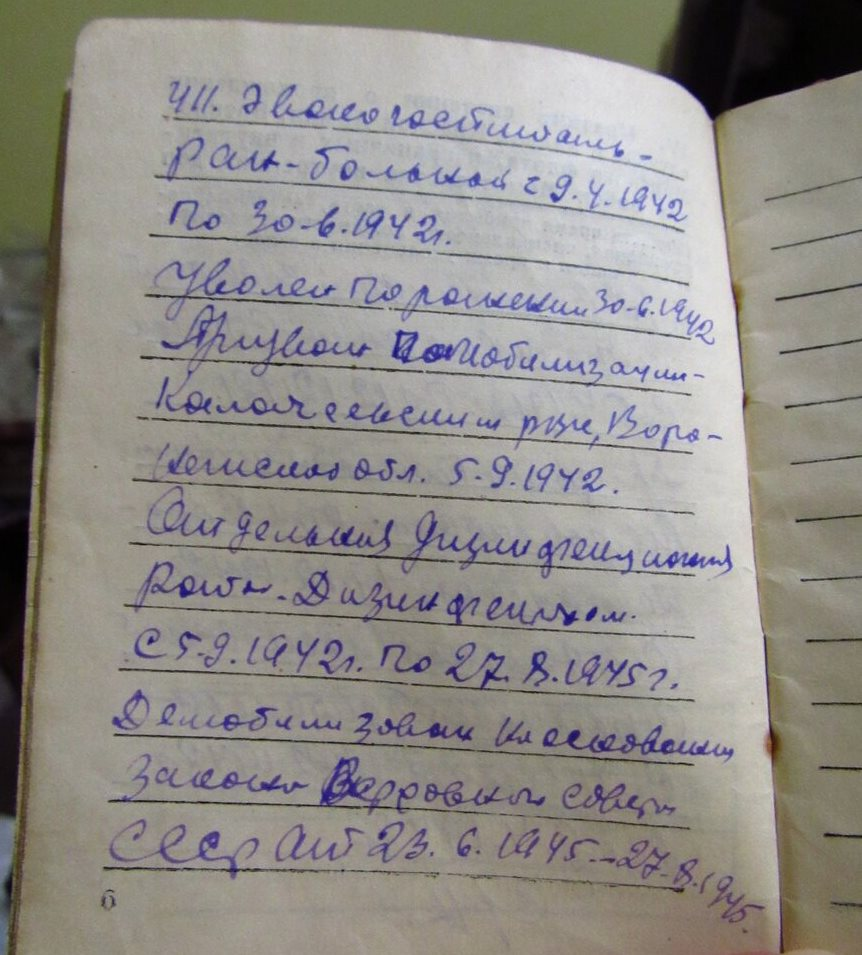 411. Эвакогоспиталь -
Ран-больной с 9.4.1942
По 30-6.1942г.
Уволен по ранении 30-6.1942
Призван по мобилизации-
Калачеевским рвк, Воро-
нежской обл. 5-9.1942.
Отдельная Дизинфекционная
Рота - Дизинфектором.
С 5-9.1942г. По 27.8.1945г.
Демобилизован на основании
Закона Верховной Совета
СССР от 23.6.1945.-27.8.1945.
6